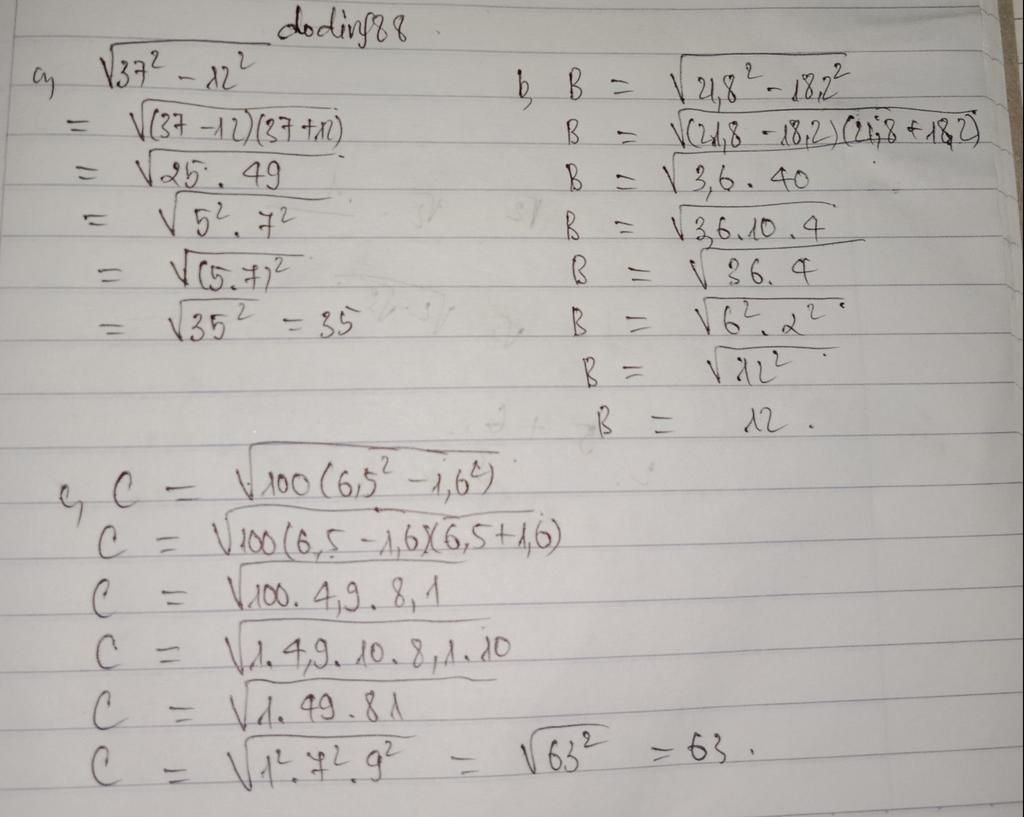 doding88
a, √37² - 12²
= √(37 - 12)(37 + 12)
= √25 . 49
= √5² . 7²
= √(5.7)²
= √35² = 35
b, B = √21,8² - 18,2²
B = √(21,8 - 18,2)(21,8 + 18,2)
B = √3,6 . 40
B = √3,6.10.4
B = √36.4
B = √6² . 2²
B = √12²
B = 12 .
c, C = √100(6,5² - 1,6²)
C = √100(6,5 - 1,6)(6,5 + 1,6)
C = √100. 4,9 . 8,1
C = √1. 4,9. 10. 8,1. 10
C = √1. 49 . 81
C = √1² . 7² . 9² = √63² = 63 .